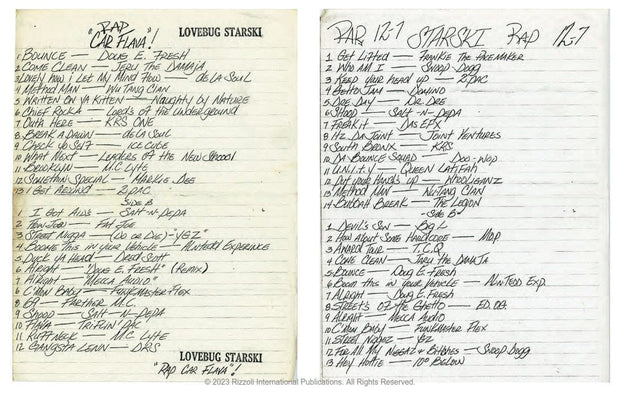 RAP
"CAR FLAVA"!
LOVEBUG STARSKI
1 BOUNCE — DOUG E. FRESH
2 COME CLEAN — JERU THE DAMAJA
3 LOVELY HOW I LET MY MIND FLOW — DE LA SOUL
4 METHOD MAN — WU TANG CLAN
5 WRITTEN ON YA KITTEN — NAUGHTY BY NATURE
6 CHIEF ROCKA — LORDS OF THE UNDERGROUND
7 OUTA HERE — KRS ONE
8 BREAK A DAWN — DE LA SOUL
9 CHECK YO SELF — ICE CUBE
10 WHAT NEXT — LEADERS OF THE NEW SCHOOL
11 BROOKLYN — M.C. LYTE
12 SOMETHIN SPECIAL — MARKIE DEE
13 I GET AROUND — 2 PAC
SIDE B
1 I GOT AIDS — SALT-N-PEPA
2 — FAT JOE
3 STREET NIGGA — (DO OR DIE) - YEZ"
4 BOOMIE THIS IN YOUR VEHICLE — EXPERINCE
5 DUCK YA HEAD —
6 ALRIGHT — DOUG E. FRESH" (REMIX)
7 ALRIGHT — MECCA AUDIO"
8 C'MON BABY — FUNKMASTER FLEX
8 69 — FATHER M.C.
9 SHOOP — SALT-N-DEPA
10 FLAVA —
11 RUFFNECK — MC LYTE
12 GANGSTA LENN — DRS
LOVEBUG STARSKI
"RAP CAR FLAVA"!
RAP 12-7 STARSKI RAP 12-7
1 GET LIFTED — FRANKIE THE PACEMAKER
2 WHO AM I — SNOOP DOGG
3 KEEP YOUR HEAD UP — 2 PAC
4 GETTO JAM — DOMINO
5 DRE DAY — DR DRE
6 SHOOP — SALT-N-DEPA
7 FREAKIT — DAS EFX
8 HZ DA JOINT — JOINT VENTURES
9 SOUTH BRONX — KRS
10 DA BOUNCE SQUAD — DOO-WOP
11 U.N.I.T.Y — QUEEN LATIFAH
12 PUT YOUR HANDS UP — WHOOLIGANZ
13 METHOD MAN — WU-TANG CLAN
14 BUDDAH BREAK — THE LEGION
SIDE B
1 DEVIL'S SON — BIG L
2 HOW ABOUT SOME HARDCORE — MOP
3 AWARD TOUR — T.C.Q
4 COME CLEAN — JERU THE DAMAJA
5 BOUNCE — DOUG E. FRESH
6 BOOM THIS IN YOUR VEHICLE — EXP.
7 ALRIGHT — DOUG E. FRESH
8 STREETS OF THE GHETTO — ED. OG
9 ALRIGHT — MECCA AUDIO
10 C'MON BABY — FUNKMASTER FLEX
11 STREET NIGGEZ — YEZ
12 FOR ALL MY NIGGAZ & BITCHES — SNOOP DOGG
13 HEY HOTTIE — 10° BELOW
© 2023 Rizzoli International Publications. All Rights Reserved.